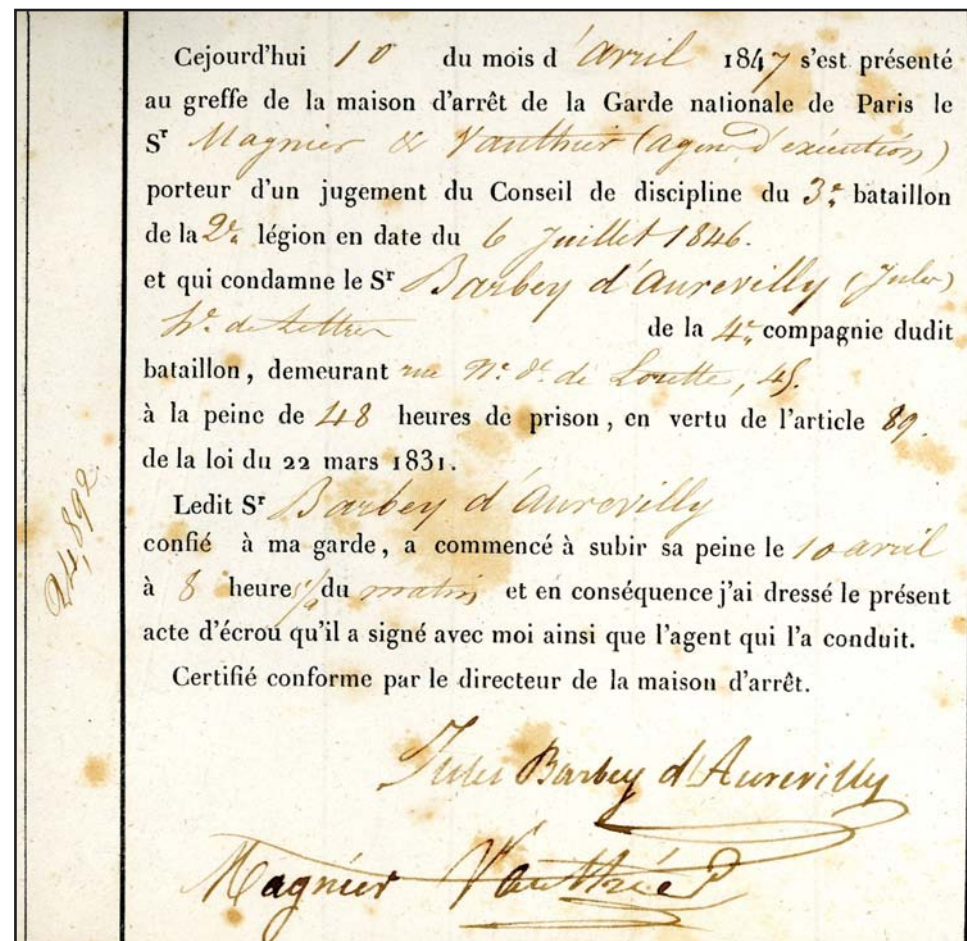 Cejourd'hui 10 du mois d'avril 1847 s'est présenté
au greffe de la maison d'arrêt de la Garde nationale de Paris le
Sr Magnier & Vauthier (agens d'exécution)
porteur d'un jugement du Conseil de discipline du 3e bataillon
de la 2e légion en date du 6 Juillet 1846.
et qui condamne le Sr Barbey d'Aurevilly (Jules)
he de Lettres de la 4e compagnie dudit
bataillon, demeurant rue Ne De de Lorette, 45.
à la peine de 48 heures de prison, en vertu de l'article 89.
de la loi du 22 mars 1831.
Ledit Sr Barbey d'Aurevilly
confié à ma garde, a commencé à subir sa peine le 10 avril
à 8 heures 1/2 du matin et en conséquence j'ai dressé le présent
acte d'écrou qu'il a signé avec moi ainsi que l'agent qui l'a conduit.
Certifié conforme par le directeur de la maison d'arrêt.
24,892
Jules Barbey d'Aurevilly
Magnier Vauthier